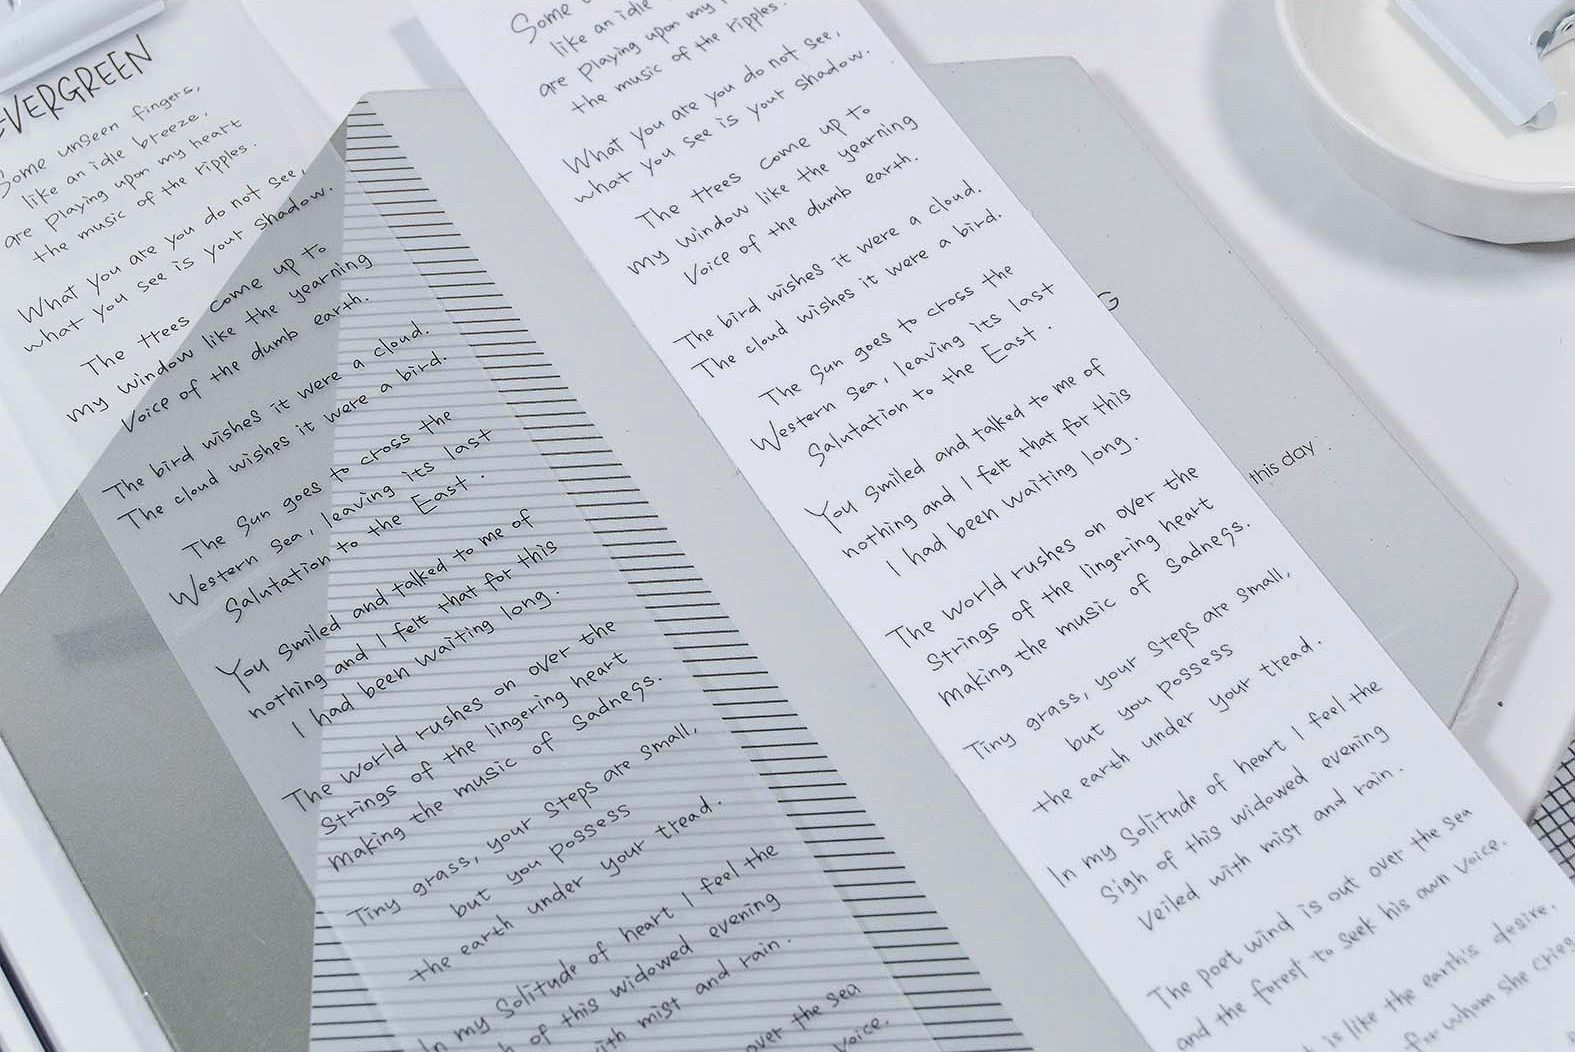 EVERGREEN
Some unseen fingers,
like an idle breeze,
are playing upon my heart
the music of the ripples.
What you are you do not see,
what you see is your shadow.
The trees come up to
my window like the yearning
Voice of the dumb earth.
The bird wishes it were a cloud.
The cloud wishes it were a bird.
The Sun goes to cross the
Western Sea, leaving its last
Salutation to the East.
You Smiled and talked to me of
nothing and I felt that for this
I had been waiting long.
The world rushes on over the
Strings of the lingering heart
making the music of Sadness.
Tiny grass, your Steps are Small,
but you possess
the earth under your tread.
In my Solitude of heart I feel the
of this widowed evening
with mist and rain.
over the sea
Voice.
Some
like an idle
are playing upon my
the music of the ripples.
What you are you do not see,
what you see is your shadow.
The trees come up to
my window like the yearning
Voice of the dumb earth.
The bird wishes it were a cloud.
The cloud wishes it were a bird.
The Sun goes to cross the
Western Sea, leaving its last
Salutation to the East.
You Smiled and talked to me of
nothing and I felt that for this
I had been waiting long.
The world rushes on over the
Strings of the lingering heart
making the music of Sadness.
Tiny grass, your Steps are Small,
but you possess
the earth under your tread.
In my Solitude of heart I feel the
Sigh of this widowed evening
Veiled with mist and rain.
The poet wind is out over the sea
and the forest to seek his own Voice.
is like the earth's desire.
for whom she cries
G
this day.